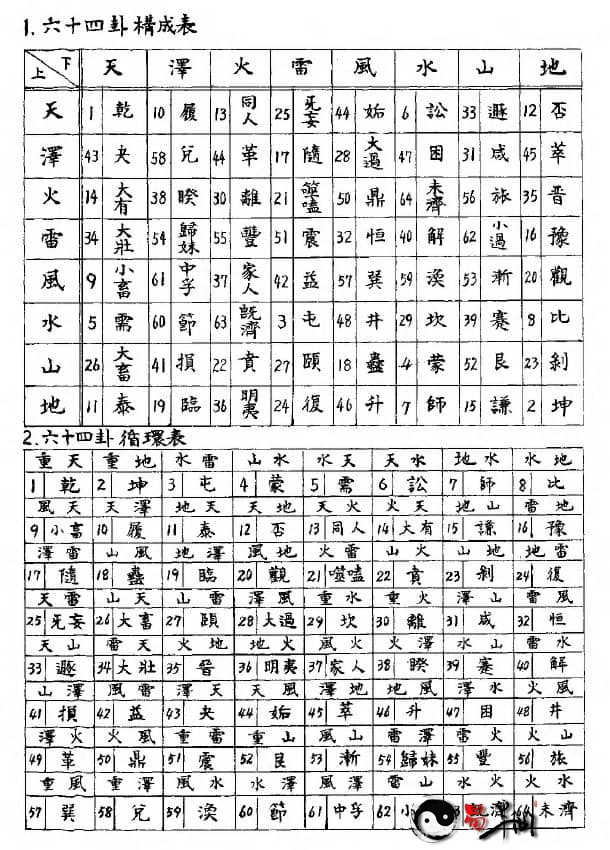 1. 六十四卦構成表
上 下 天 澤 火 雷 風 水 山 地
天 1 乾 10 履 13 同人 25 旡妄 44 姤 6 訟 33 遯 12 否
澤 43 夬 58 兌 44 革 17 隨 28 大過 47 困 31 咸 45 萃
火 14 大有 38 睽 30 離 21 噬嗑 50 鼎 64 未濟 56 旅 35 晋
雷 34 大壯 54 歸妹 55 豐 51 震 32 恒 40 解 62 小過 16 豫
風 9 小畜 61 中孚 37 家人 42 益 57 巽 59 渙 53 漸 20 觀
水 5 需 60 節 63 旣濟 3 屯 48 井 29 坎 39 蹇 8 比
山 26 大畜 41 損 22 賁 27 頤 18 蠱 4 蒙 52 艮 23 剝
地 11 泰 19 臨 36 明夷 24 復 46 升 7 師 15 謙 2 坤
2. 六十四卦循環表
重天 重地 水雷 山水 水天 天水 地水 水地
1 乾 2 坤 3 屯 4 蒙 5 需 6 訟 7 師 8 比
風天 天澤 地天 天地 天火 火天 地山 雷地
9 小畜 10 履 11 泰 12 否 13 同人 14 大有 15 謙 16 豫
澤雷 山風 地澤 風地 火雷 山火 山地 地雷
17 隨 18 蠱 19 臨 20 觀 21 噬嗑 22 賁 23 剝 24 復
天雷 山天 山雷 澤風 重水 重火 澤山 雷風
25 旡妄 26 大畜 27 頤 28 大過 29 坎 30 離 31 咸 32 恒
天山 雷天 火地 地火 風火 火澤 水山 雷水
33 遯 34 大壯 35 晋 36 明夷 37 家人 38 睽 39 蹇 40 解
山澤 風雷 澤天 天風 澤地 地風 澤水 水風
41 損 42 益 43 夬 44 姤 45 萃 46 升 47 困 48 井
澤火 火風 重雷 重山 風山 雷澤 雷火 火山
49 革 50 鼎 51 震 52 艮 53 漸 54 歸妹 55 豐 56 旅
重風 重澤 風水 水澤 風澤 雷山 水火 火水
57 巽 58 兌 59 渙 60 節 61 中孚 62 小 3 旣濟 64 未濟